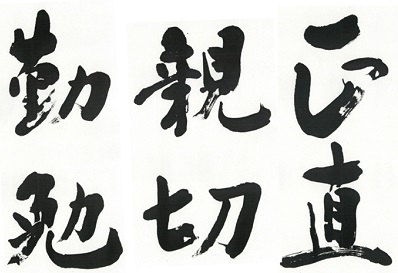 正直
親切
勤勉